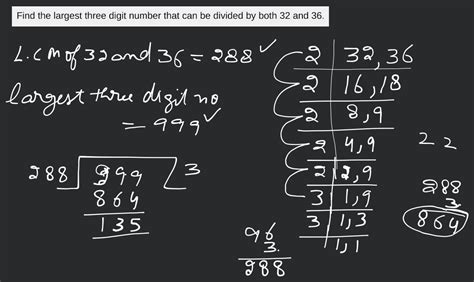 Find the largest three digit number that can be divided by both 32 and 36.
L.C.M of 32 and 36 = 288 ✓
largest three digit no
= 999 ✓
288 999 3
864
135
2 32, 36
2 16, 18
2 8, 9
2 4, 9
2 2, 9
3 1, 9
3 1, 3
1, 1
2 2
288
3
864
96
3
288